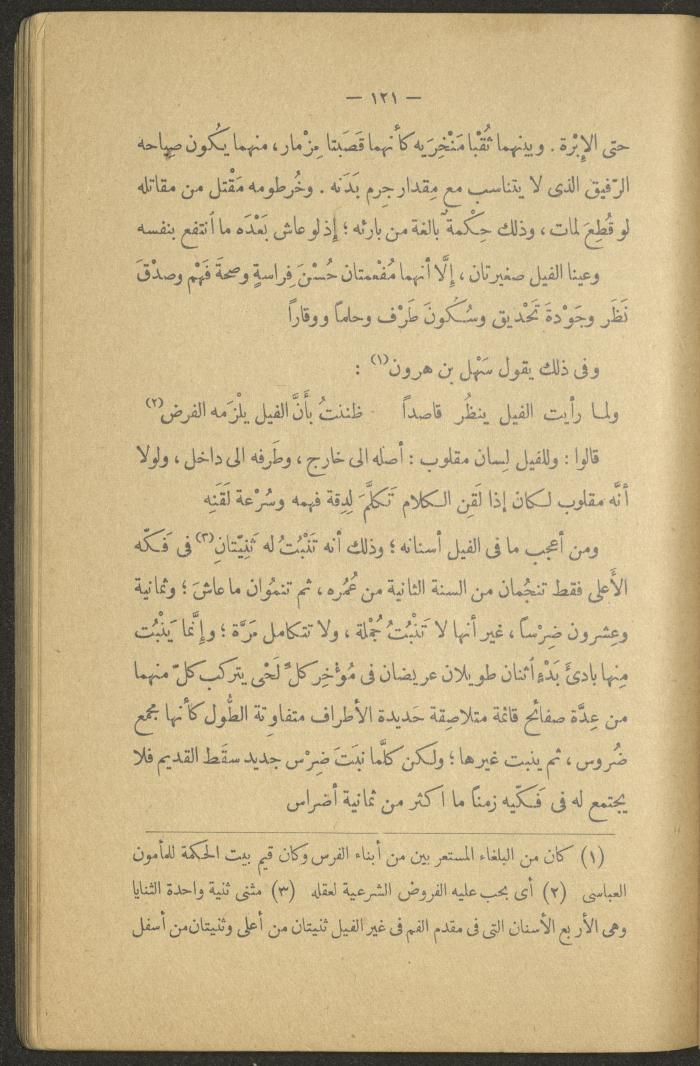 — ١٢١ —
حتى الإِبْرة . وبينهما ثُقْبا مَنْخِرَيه كأنهما قَصَبتا مِزْمار ، منهما يكُون صِياحه
الرّفيق الذى لا يتناسب مع مِقدار جِرم بَدَنه . وخُرطومه مَقْتل من مقاتله
لو قُطِعَ لمات ، وذلك حِكْمةٌ بالغة من بارئه ؛ إِذ لو عاش بَعْدَه ما أنتفع بنفسه
وعينا الفيل صغيرتان ، إِلَّا أنهما مُفْعمتان حُسْنَ فِراسةٍ وصحةَ فَهْم وصدْقَ
نَظَر وجَوْدةَ تَحْديق وسُكُونَ طَرْف وحلماً ووقاراً
وفى ذلك يقول سَهْل بن هرون(١) :
ولمـا رأيت الفيل ينظُر قاصداً ظننتُ بأَنَّ الفيل يلْزَمه الفرض(٢)
قالوا : وللفيل لِسان مقلوب : أصله الى خارج ، وطَرفه الى داخل ، ولولا
أنَّه مقلوب لكان إذا لَقِن الكلام تَكلَّمَ لِدِقة فهمه وسُرْعة لَقَنِه
ومن أعجب ما فى الفيل أسنانه ؛ وذلك أنه تَنْبُتُ له ثَنِيّتانِ(٣) فى فَكّه
الأَعلى فقط تنجُمان من السنة الثانية من عُمُره ، ثم تنمُوان ما عاشَ ؛ وثمانية
وعِشرون ضِرْساً ، غير أنها لا تَنْبُتُ جُمْلة ، ولا تتكامل مَرَّة ؛ وإِنَّما يَنْبُت
مِنها بادئَ بَدْءٍ أثنان طويلان عريضان فى مُؤْخِر كلِّ لَحْى يتركب كلّ منهما
من عِدَّة صفائح قائمة متلاصِقة حَديدة الأطراف متفاوِتة الطُّول كأنها مجمع
ضُروس ، ثم ينبت غيرها ؛ ولكن كلَّما نبَتَ ضِرْس جديد سقَط القديم فلا
يجتمع له فى فَكّيه زمنًا ما اكثر من ثمانية أضراس
(١) كان من البلغاء المستعر بين من أبناء الفرس وكان قيم بيت الحكمة للمأمون
العباسى (٢) أى يجب عليه الفروض الشرعية لعقله (٣) مثنى ثنية واحدة الثنايا
وهى الأربع الأسنان التى فى مقدم الفم فى غير الفيل ثنيتان من أعلى وثنيتان من أسفل